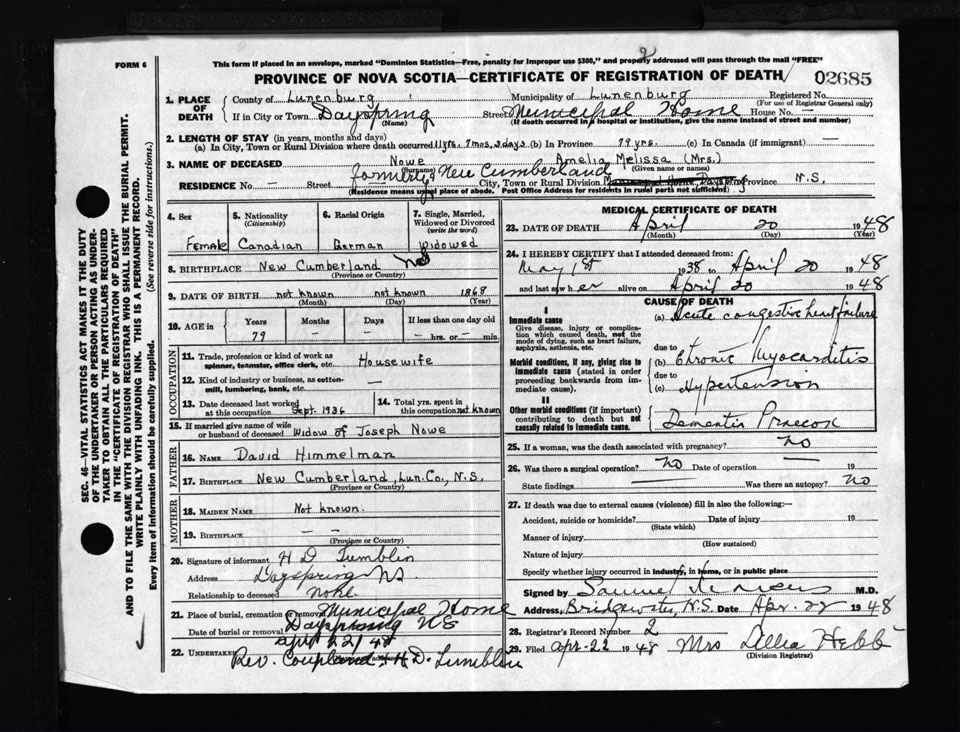 FORM 6
This form if placed in an envelope, marked "Dominion Statistics—Free, penalty for improper use $300," and properly addressed will pass through the mail "FREE"
2
PROVINCE OF NOVA SCOTIA—CERTIFICATE OF REGISTRATION OF DEATH
02685
SEC. 46—VITAL STATISTICS ACT MAKES IT THE DUTY
OF THE UNDERTAKER OR PERSON ACTING AS UNDER-
TAKER TO OBTAIN ALL THE PARTICULARS REQUIRED
IN THE "CERTIFICATE OF REGISTRATION OF DEATH"
AND TO FILE THE SAME WITH THE DIVISION REGISTRAR WHO SHALL ISSUE THE BURIAL PERMIT.
WRITE PLAINLY WITH UNFADING INK. THIS IS A PERMANENT RECORD.
Every item of information should be carefully supplied. (See reverse side for instructions.)
1. PLACE OF DEATH
County of Lunenburg Municipality of Lunenburg Registered No.
(For use of Registrar General only)
If in City or Town Dayspring Street Municipal Home House No. —
(Name) (If death occurred in a hospital or institution, give the name instead of street and number)
2. LENGTH OF STAY (in years, months and days)
(a) In City, Town or Rural Division where death occurred 11yrs. 7mos. 2days. (b) In Province 79 yrs. (c) In Canada (if immigrant) —
3. NAME OF DECEASED Nowe Amelia Melissa (Mrs.)
(Surname) (Given name or names)
formerly New Cumberland
RESIDENCE No. — Street City, Town or Rural Division Municipal Home, Dayspring Province N.S.
(Residence means usual place of abode. Post Office Address for residents in rural parts not sufficient)
4. Sex
Female
5. Nationality
(Citizenship)
Canadian
6. Racial Origin
German
7. Single, Married, Widowed or Divorced
(write the word)
Widowed
8. BIRTHPLACE New Cumberland NS
(Province or Country)
9. DATE OF BIRTH not known not known 1868
(Month) (Day) (Year)
10. AGE in
Years Months Days If less than one day old
79 — — — hrs. or — min.
OCCUPATION
11. Trade, profession or kind of work as spinner, teamster, office clerk, etc. Housewife
12. Kind of industry or business, as cotton-mill, lumbering, bank, etc. —
13. Date deceased last worked at this occupation Sept. 1936
14. Total yrs. spent in this occupation not known
15. If married give name of wife or husband of deceased Widow of Joseph Nowe
FATHER
16. Name David Himmelman
17. Birthplace New Cumberland, Lun. Co., N.S.
(Province or Country)
MOTHER
18. Maiden Name Not known.
19. Birthplace — —
(Province or Country)
20. Signature of informant H D Tumblin
Address Dayspring NS.
Relationship to deceased none
21. Place of burial, cremation or removal Municipal Home
Dayspring NS
Date of burial or removal April 22/48
22. Undertaker Rev. Coupland & H. D. Tumblin
MEDICAL CERTIFICATE OF DEATH
23. DATE OF DEATH April 20 1948
(Month) (Day) (Year)
24. I HEREBY CERTIFY that I attended deceased from:
May 1st 1938 to April 20 1948
and last saw her alive on April 20 1948
CAUSE OF DEATH
I
Immediate cause
Give disease, injury, or complication which caused death, not the mode of dying, such as heart failure, asphyxia, asthenia, etc.
(a) Acute congestive heart failure
due to
Morbid conditions, if any, giving rise to immediate cause (stated in order proceeding backwards from immediate cause).
(b) Chronic Myocarditis
due to
(c) Hypertension
II
Other morbid conditions (if important) contributing to death but not causally related to immediate cause.
Dementia Praecox
25. If a woman, was the death associated with pregnancy? No
26. Was there a surgical operation? No Date of operation — 19
State findings — Was there an autopsy? No
27. If death was due to external causes (violence) fill in also the following:—
Accident, suicide or homicide? Date of injury 19
(State which)
Manner of injury
(How sustained)
Nature of injury
Specify whether injury occurred in industry, in home, or in public place
Signed by Samuel M.D.
Address, Bridgewater, N.S. Date Apr. 22 1948
28. Registrar's Record Number 2
29. Filed Apr-22 1948 Mrs Dellia Hebb
(Division Registrar)